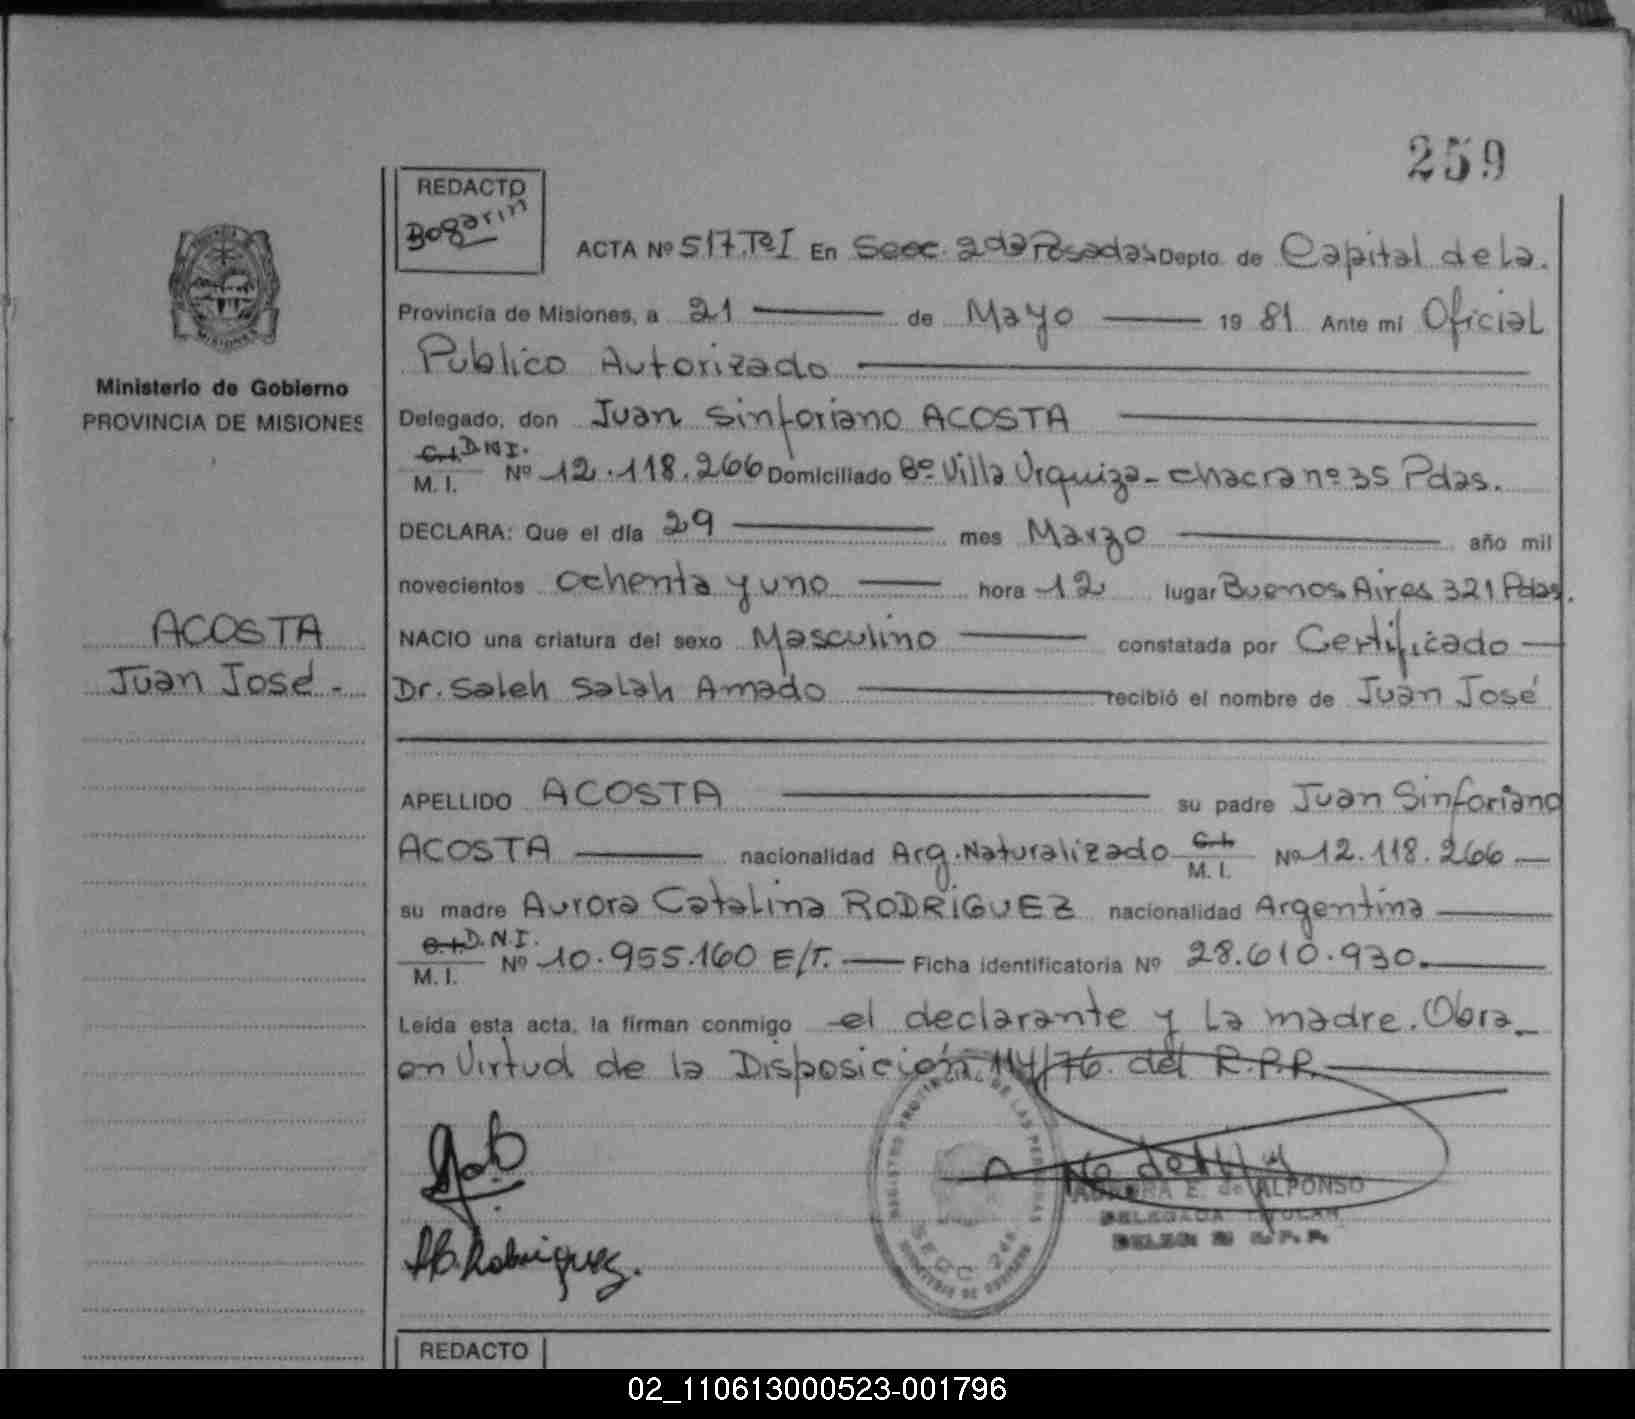 259
REDACTO
Bogarin
ACTA Nº 517.TºI En Secc. 2da Posadas Depto. de Capital de la.
Provincia de Misiones, a 21 de Mayo 19 81 Ante mi Oficial
Publico Autorizado
Ministerio de Gobierno
PROVINCIA DE MISIONES
Delegado, don Juan Sinforiano ACOSTA
C.I. D.N.I.
M. I. Nº 12.118.266 Domiciliado Bº Villa Urquiza - chacra nº 35 Pdas.
DECLARA: Que el día 29 mes Marzo año mil
novecientos ochenta y uno hora 12 lugar Buenos Aires 321 Pdas.
ACOSTA
Juan José -
NACIO una criatura del sexo Masculino constatada por Certificado
Dr. Saleh Salah Amado recibió el nombre de Juan José
APELLIDO ACOSTA su padre Juan Sinforiano
ACOSTA nacionalidad Arg. Naturalizado C.I. M. I. Nº 12.118.266
su madre Aurora Catalina RODRIGUEZ nacionalidad Argentina
C.I. D.N.I.
M. I. Nº 10.955.160 E/T. Ficha identificatoria Nº 28.610.930.
Leída esta acta, la firman conmigo el declarante y la madre. Obra
en Virtud de la Disposición 114/76. del R.P.P.
REGISTRO PROVINCIAL DE LAS PERSONAS
SECC 2da.
E. de ALFONSO
DELEGADA TITULAR
Rodriguez.
REDACTO
02_110613000523-001796